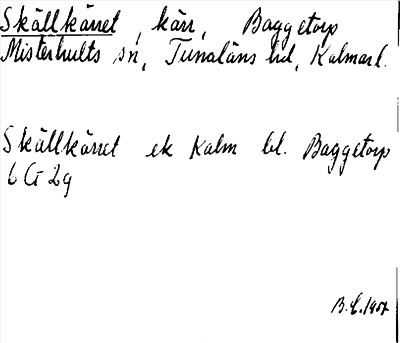 Skällkärret, kärr, Baggetorp
Misterhults sn, Tunaläns hd, Kalmar l.
Skällkärret ek Kalm bl. Baggetorp
6 G 2g